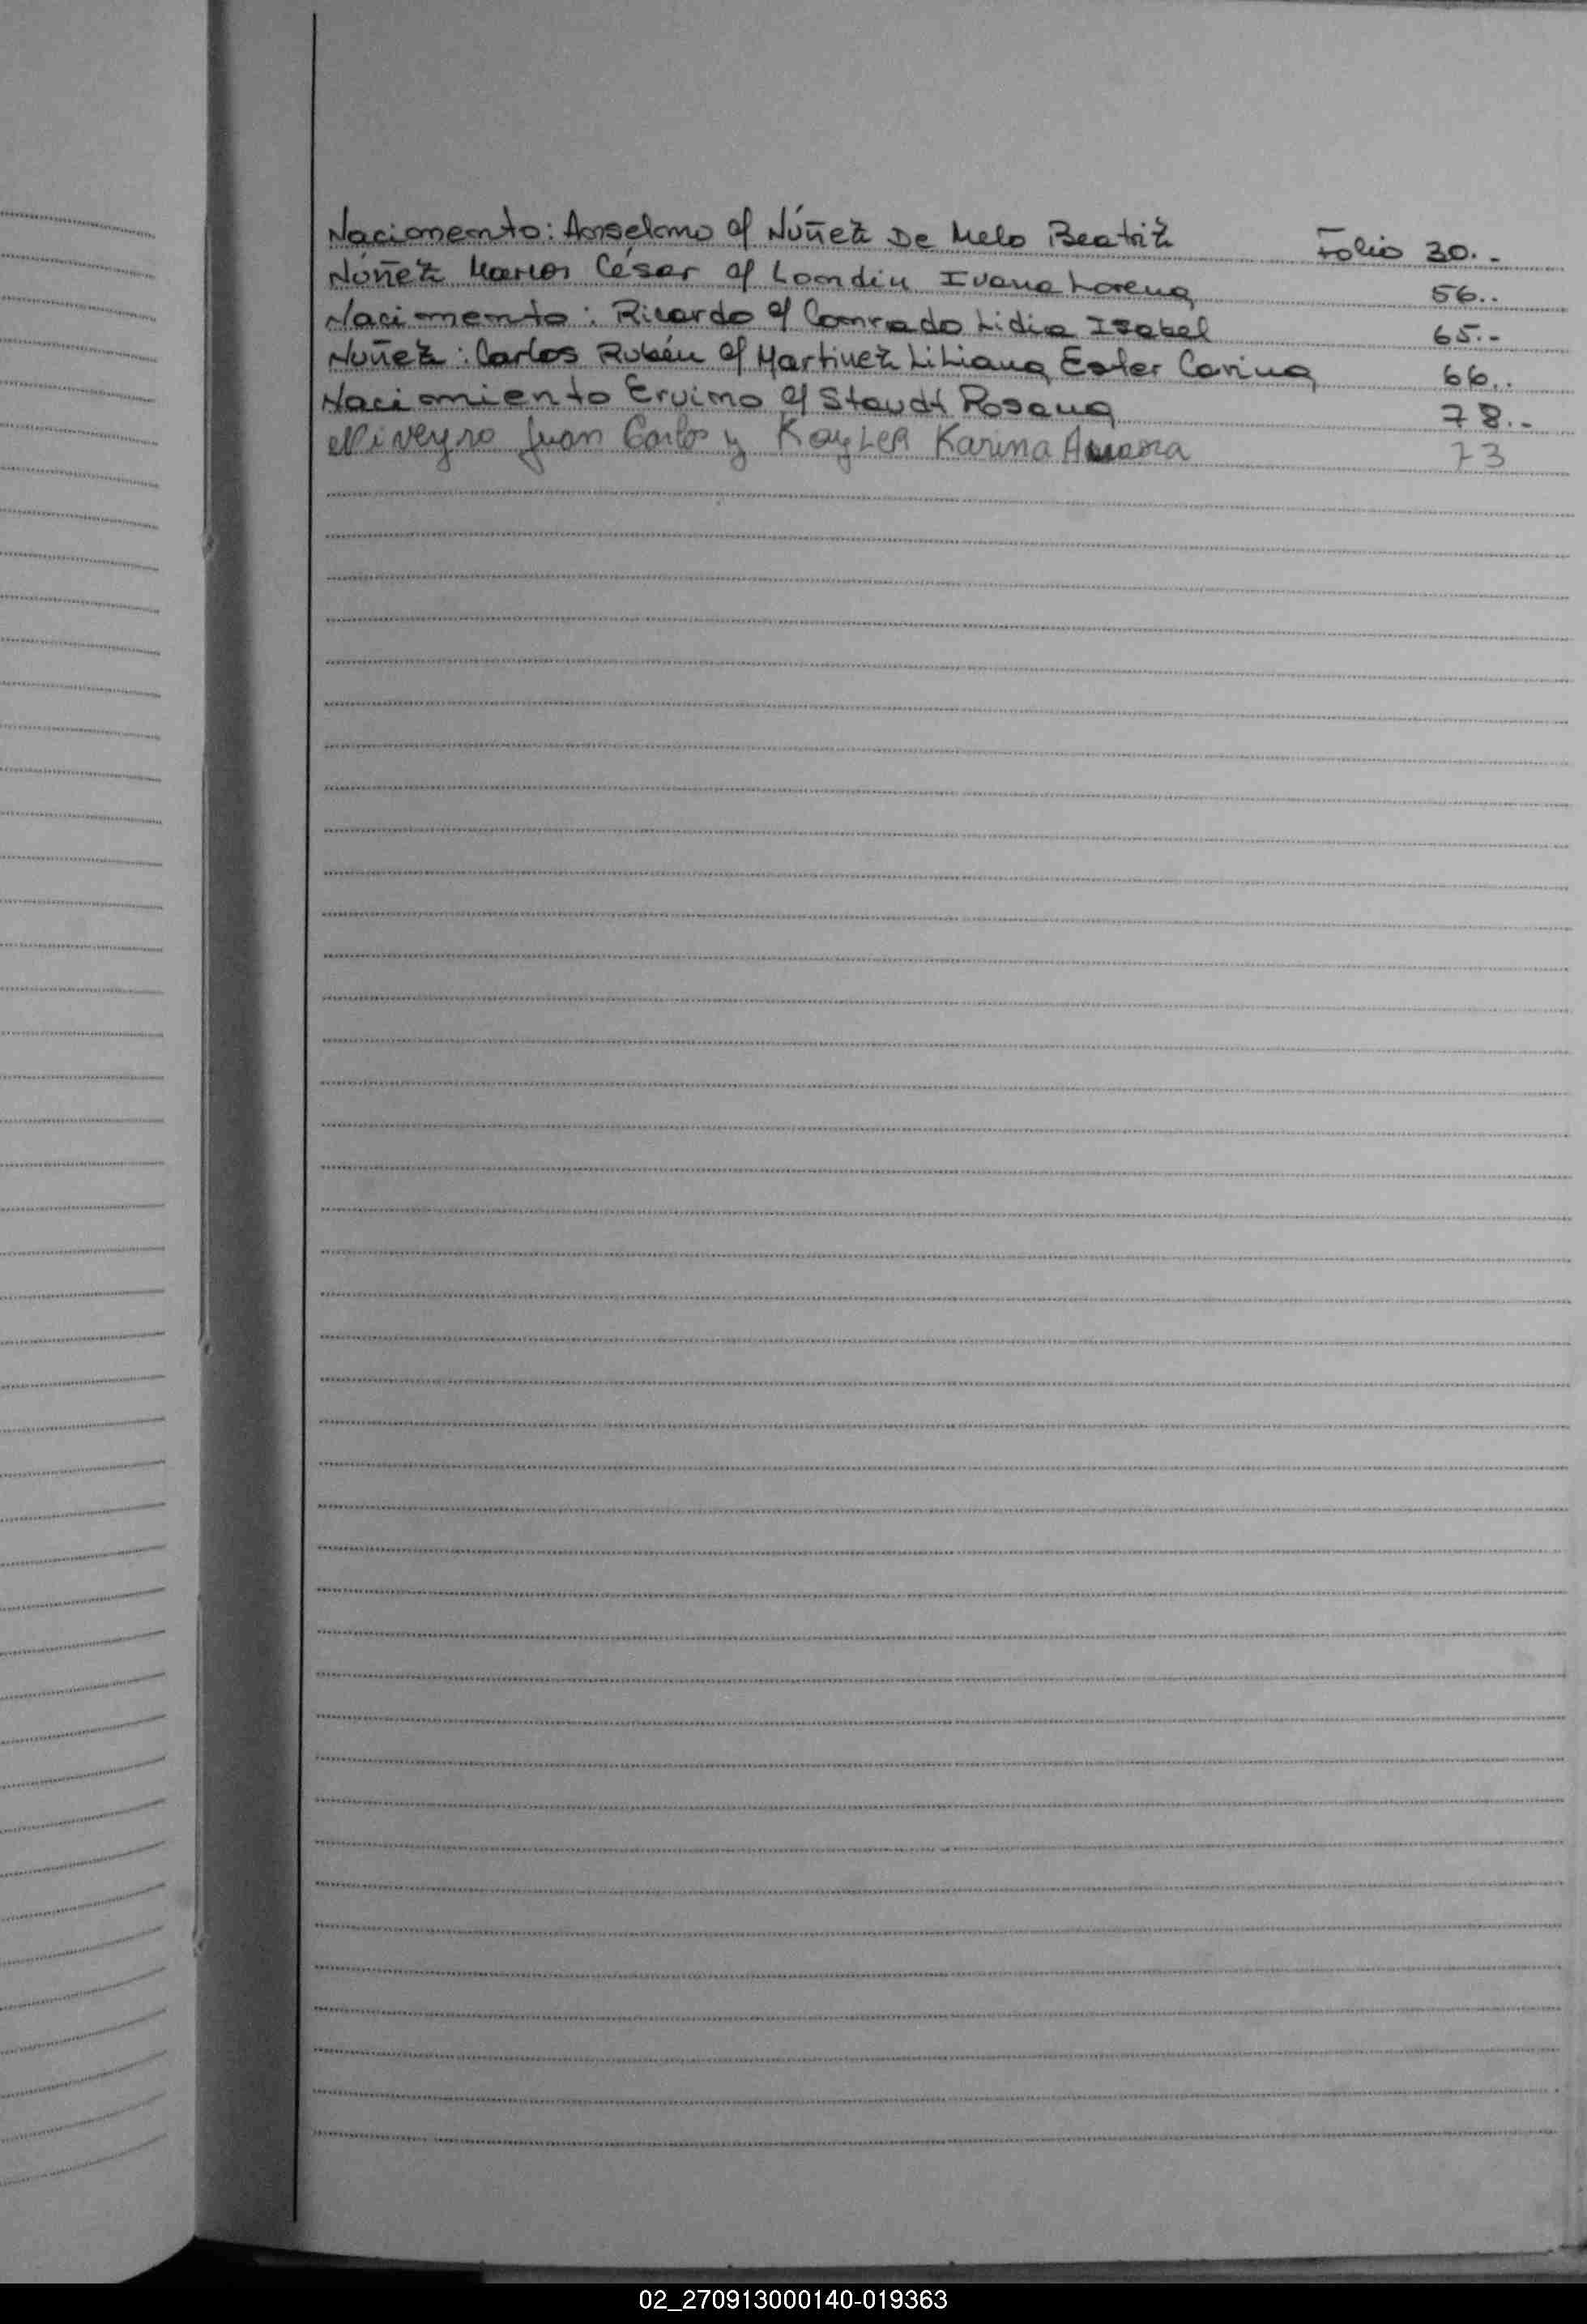 Nacimento: Anselmo y Núñez De Melo Beatriz Folio 30.-
Núñez Marcos César y Londin Ivana Lorena 56..
Nacimento: Ricardo y Conrado Lidia Isabel 65.-
Nuñez: Carlos Rubén y Martinez Liliana Ester Carina 66..
Nacimiento Ervino y Staudt Rosana 78.-
Niveyro Juan Carlos y Kayler Karina 73
02_270913000140-019363